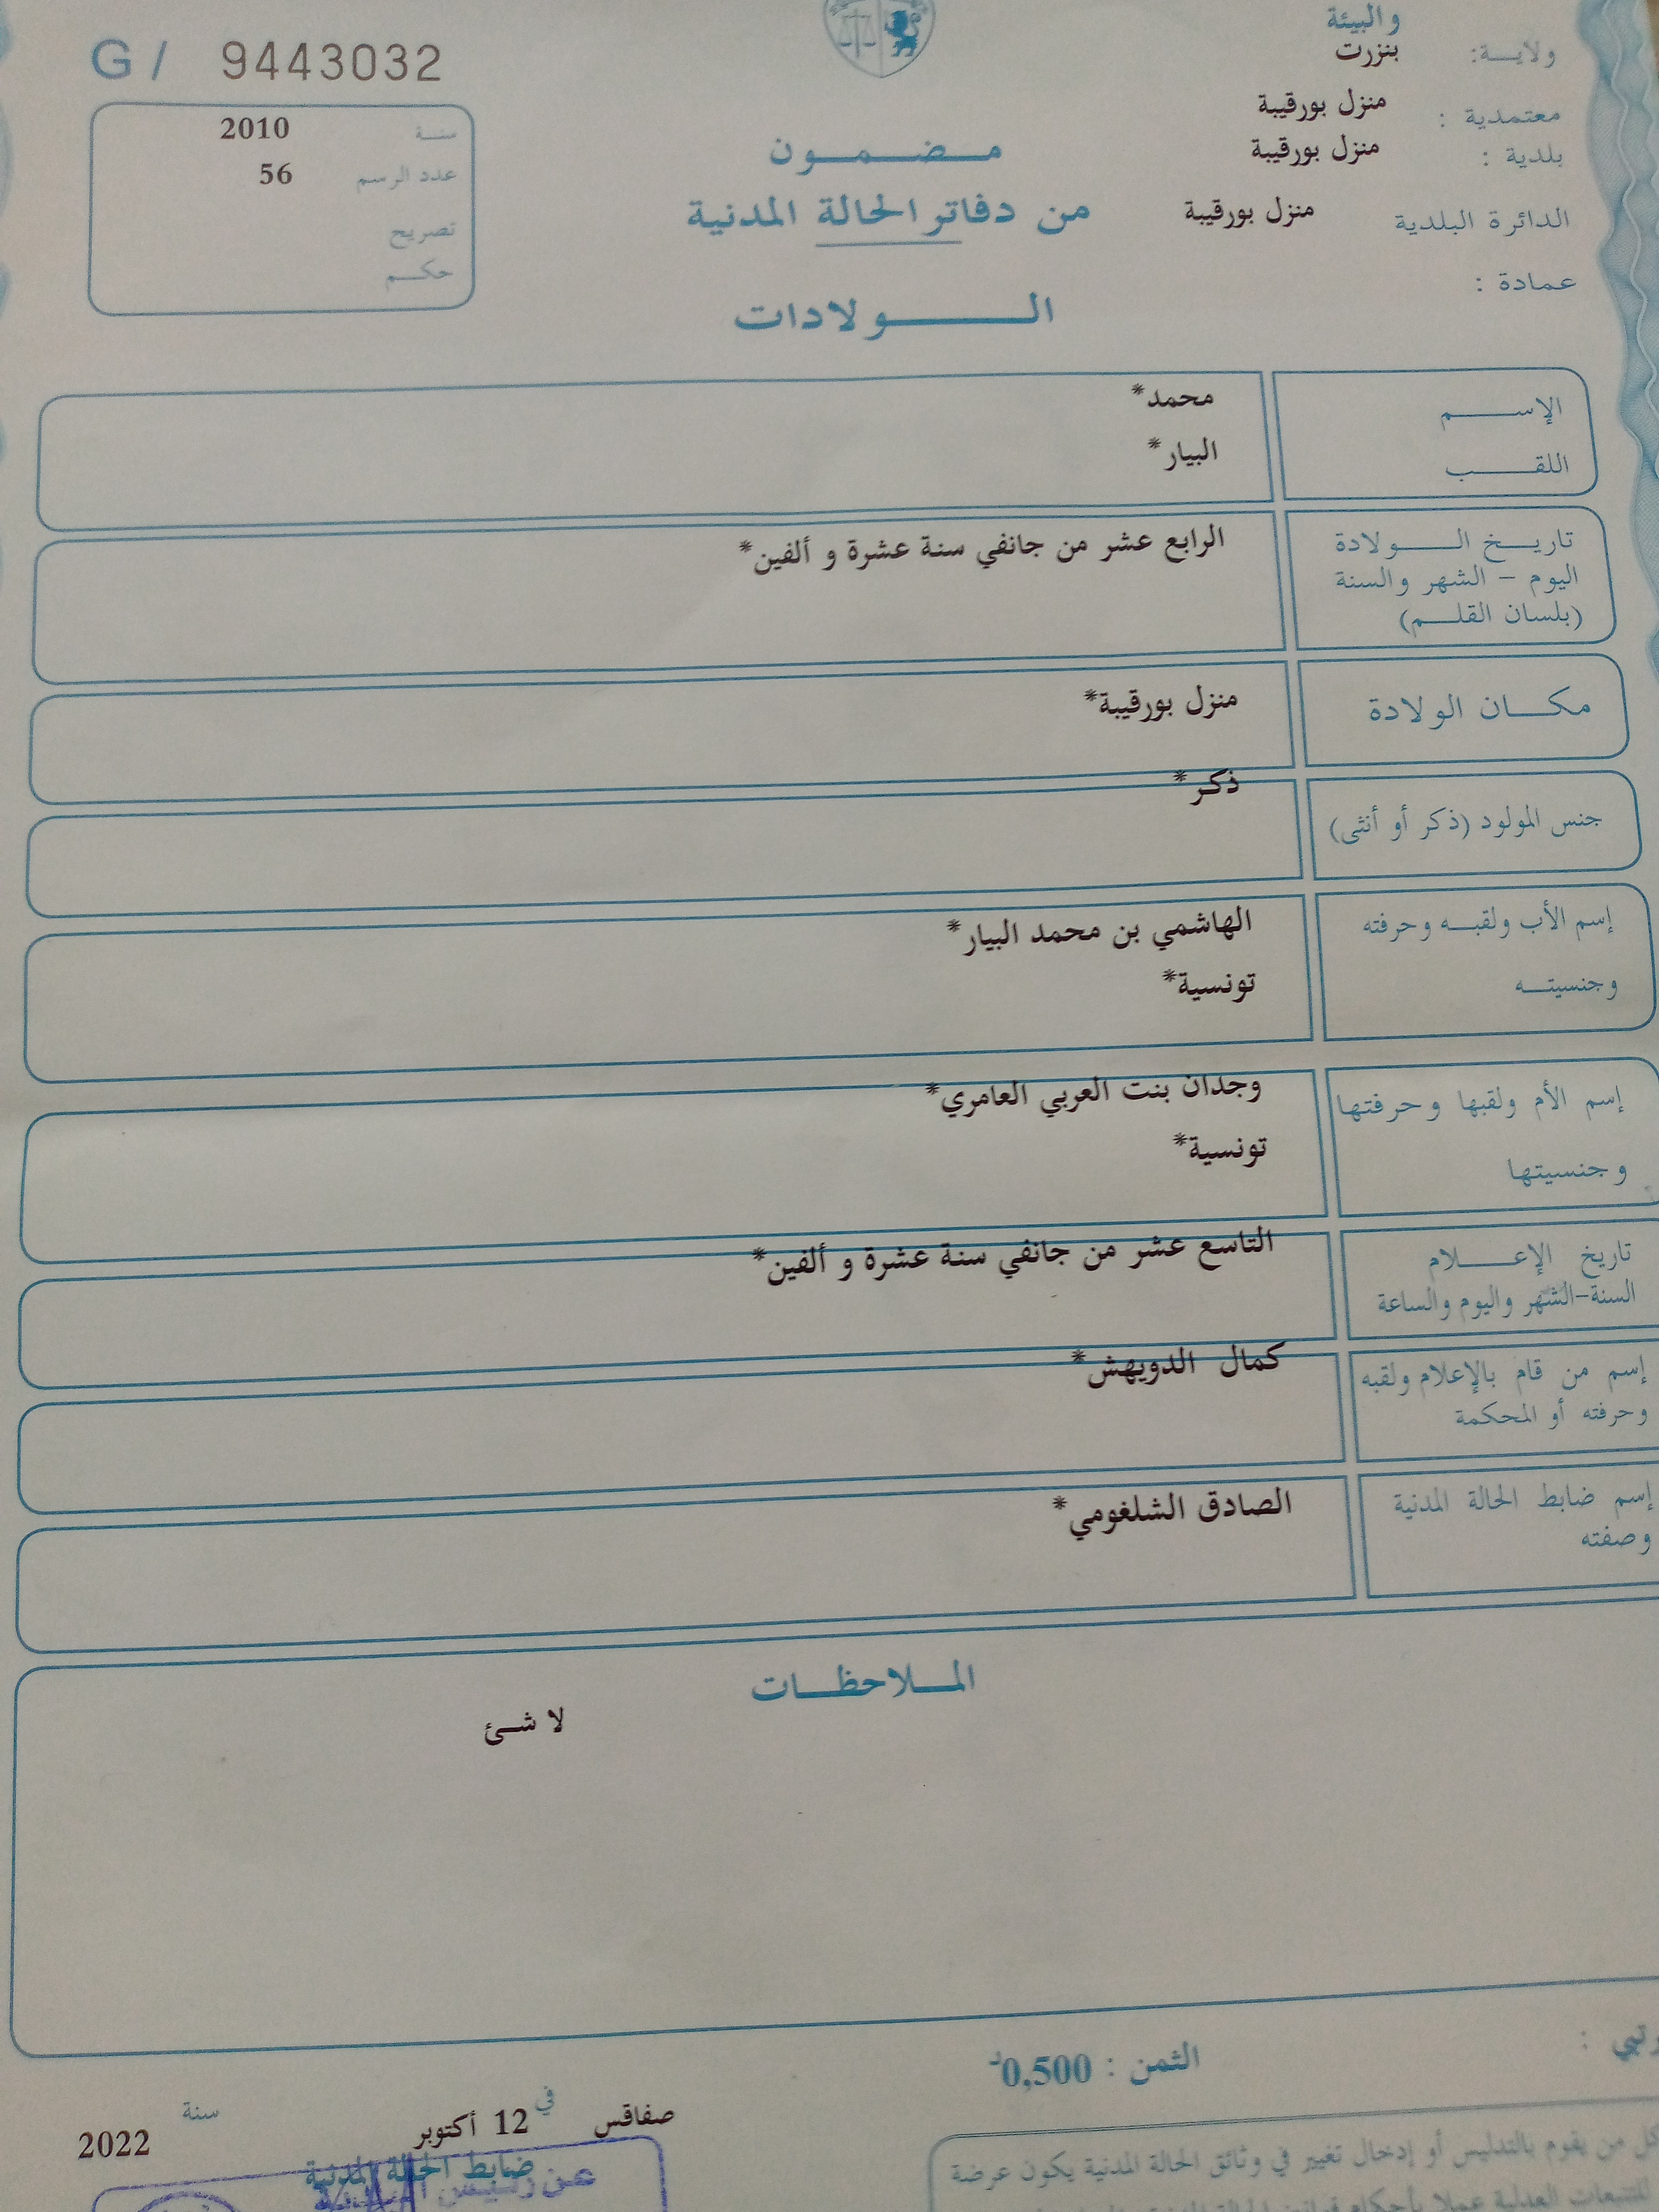 والبيئة
ولايــة: بنزرت
معتمدية : منزل بورقيبة
بلدية : منزل بورقيبة
الدائرة البلدية منزل بورقيبة
عمادة :
G / 9443032
سنة 2010
عدد الرسم 56
تصريح
حكم
مضمون
من دفاتر الحالة المدنية
الولادات
الإسم محمد*
اللقب البيار*
تاريخ الولادة الرابع عشر من جانفي سنة عشرة و ألفين*
اليوم - الشهر والسنة
(بلسان القلم)
مكان الولادة منزل بورقيبة*
جنس المولود (ذكر أو أنثى) ذكر*
إسم الأب ولقبه وحرفته الهاشمي بن محمد البيار*
وجنسيته تونسية*
إسم الأم ولقبها وحرفتها وجدان بنت العربي العامري*
وجنسيتها تونسية*
تاريخ الإعلام التاسع عشر من جانفي سنة عشرة و ألفين*
السنة-الشهر واليوم والساعة
إسم من قام بالإعلام ولقبه كمال الدويهش*
وحرفته أو المحكمة
إسم ضابط الحالة المدنية الصادق الشلغومي*
وصفته
الملاحظات
لا شئ
الثمن : 0,500د
صفاقس في 12 أكتوبر سنة 2022
ضابط الحالة المدنية
كل من يقوم بالتدليس أو إدخال تغيير في وثائق الحالة المدنية يكون عرضة